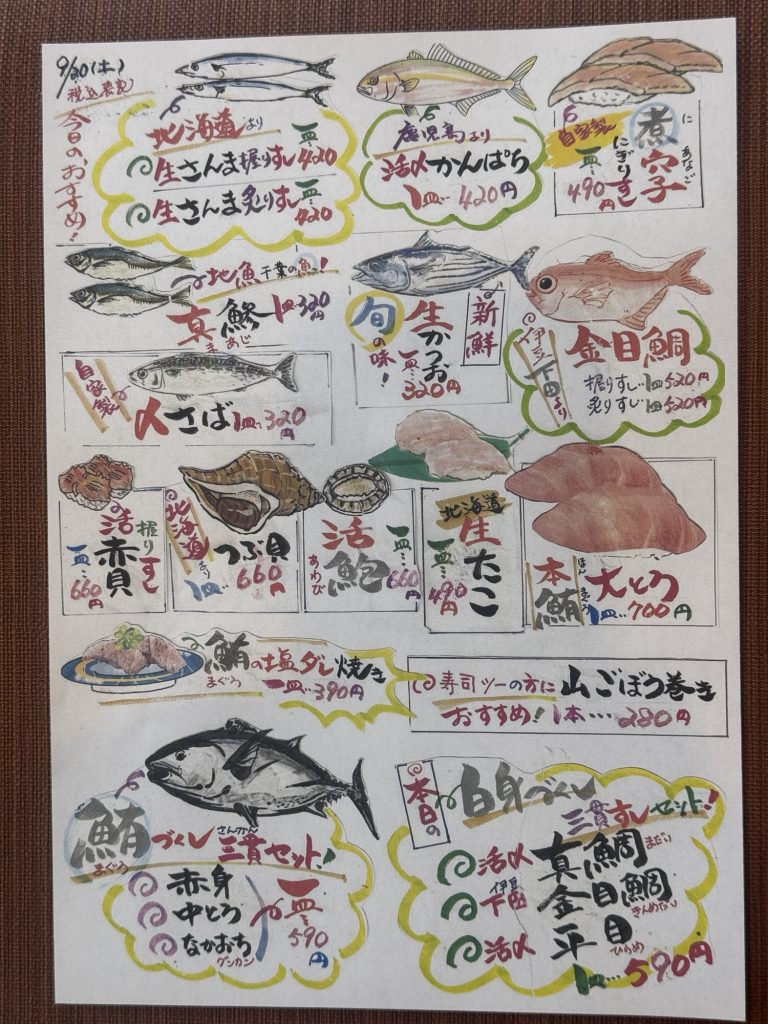 9/20(土)
税込表記
今日の、おすすめ！
北海道より
生さんま握りすし 一皿…420
生さんま炙りすし 一皿…420
鹿児島より
活〆かんぱち
1皿…420円
自家製
煮穴子
に あなご
にぎりすし
一皿…490円
地魚 千葉の魚！
真鯵 1皿320円
ま あじ
旬の味！
生かつお
一皿…320円
新鮮
伊豆下田より
金目鯛
握りすし…1皿520円
炙りすし…1皿520円
自家製
〆さば 1皿…320円
活赤貝
握りすし
一皿…660円
北海道より
つぶ貝
1皿…660円
活鮑
あわび
一皿…660円
北海道
生たこ
一皿…490円
本鮪
ほん まぐろ
大とろ
1皿…700円
鮪の塩ダレ焼き
まぐろ
一皿…390円
寿司ツーの方に
山ごぼう巻き
おすすめ！1本…280円
鮪づくし 三貫セット！
まぐろ
さんかん
赤身
中とろ
なかおち
グンカン
一皿…590円
本日の
白身づくし
三貫すしセット！
活〆 真鯛
まだい
伊豆
下田 金目鯛
きんめだい
活〆 平目
ひらめ
1皿…590円